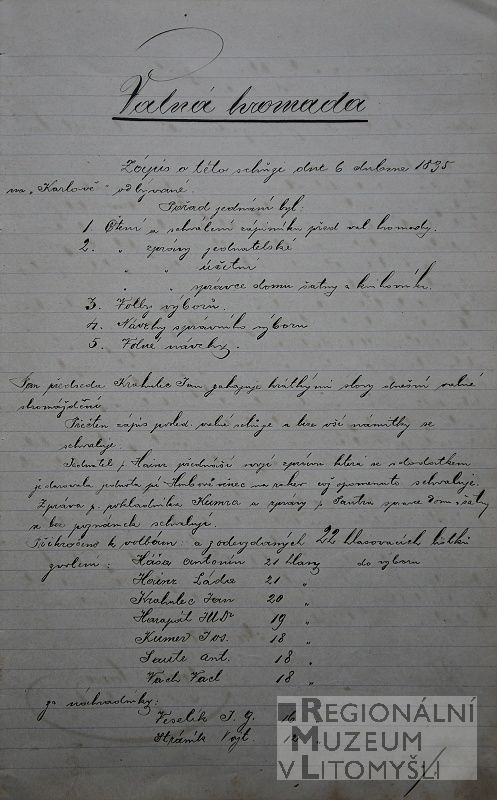 Valná hromada
Zápis o této schůzi dne 6 dubna 1895
na „Karlově" odbývané.
Pořad jednání byl:
1. Čtení a schválení zápisníku před. val. hromady.
2. „ zprávy jednatelské
„ „ účetní
„ „ správce domu šatny a knihovníka.
3. Volby výborů.
4. Návrhy správního výboru
5. Volné návrhy.
Pan předseda Krahulec Jan zahajuje krátkými slovy dnešní valné
shromáždění
Přečten zápis posled. valné schůze a beze vší námitky se
schvaluje.
Jednatel p. Hainz přednáší svoji zprávu která se s dodatkem
že darovala jednota pí věnec na rakev cvý opomenuto schvaluje.
Zpráva p. pokladníka Kumra a zprávy p. Sautra správce domu šatny
se bez poznámek schvaluje.
Přikročeno k volbám: a z odevzdaných 22 hlasovacích lístků
zvoleni: Háša Antonín 21 hlasy do výboru
Hainz Láďa 21 „
Krahulec Jan 20 „
Harapát MUDr 19 „
Kumer Jos. 18 „
Sautr Ant. 18 „
Vach Vacl 18 „
za náhradníky:
Veselík J. G.
Stráník Vojt.
REGIONÁLNÍ
MUZEUM
V LITOMYŠLI